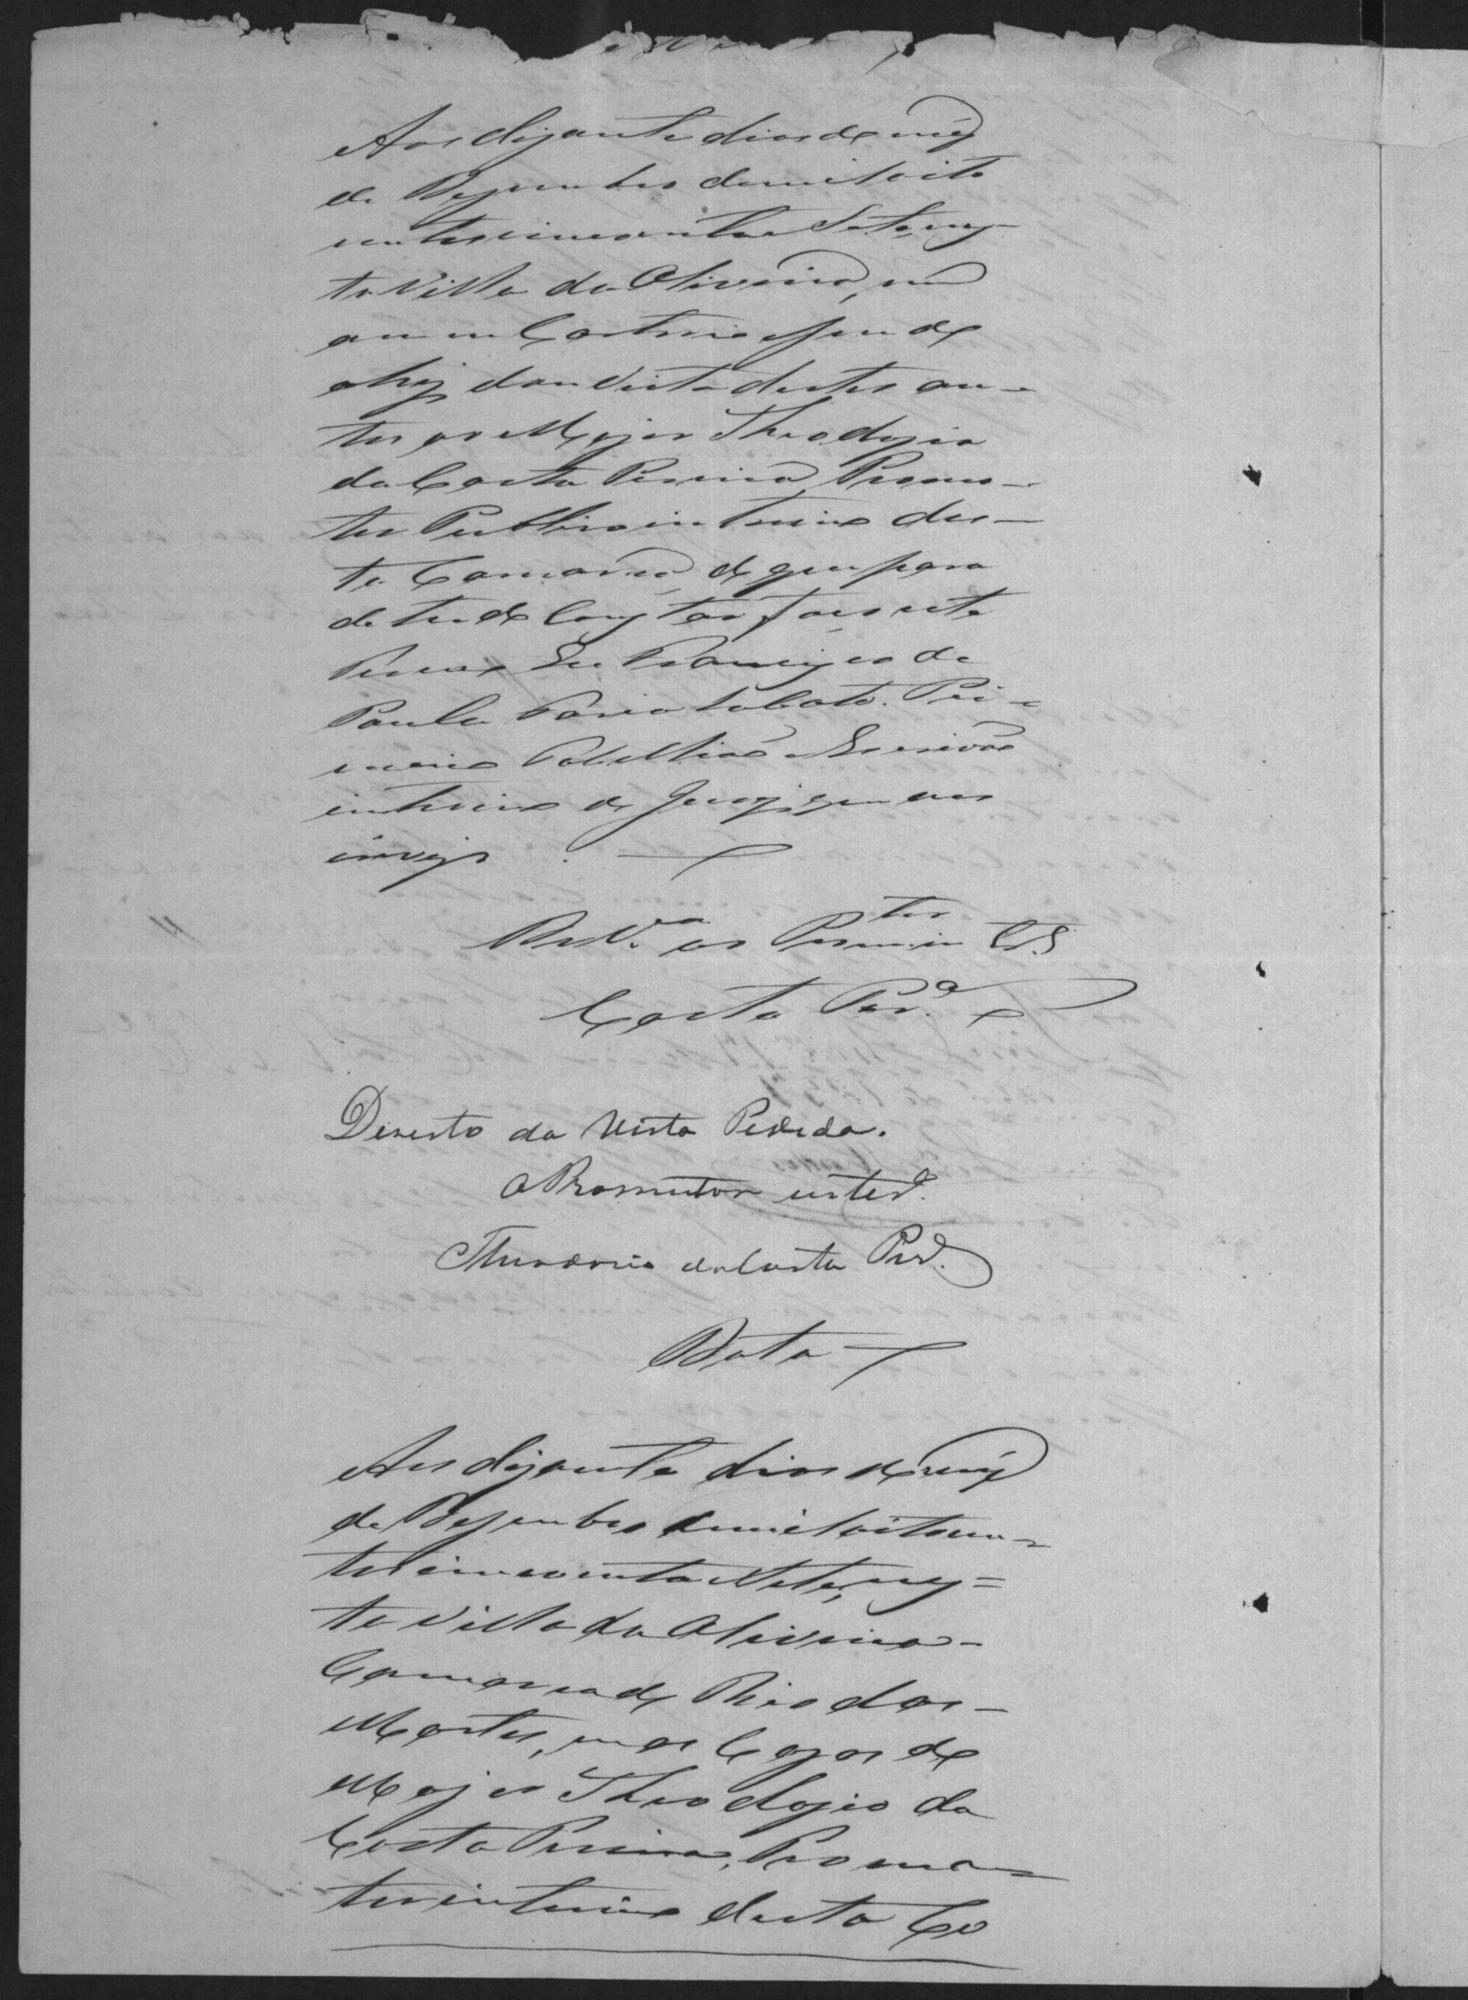 Aos dezoito dias do mez
de Dezembro de mil oito
centos cincoenta e Sete, nes-
ta Villa da Oliveira, em
o meu Cartorio e sendo
ahi, dou vista destes au-
tos ao Major Theodozio
da Costa Pereira, Promo-
tor Publico interino des-
ta Comarca, do que para
de tudo constar faço este
termo Eu Francisco de
Paula Faria Lobato. Pri-
meiro Tabellião Escrivão
interino do Jury, que as
escrevi
ao Promtor
Costa Perª
Dezisto da Vista Pedida.
O Promutor inter.º
Theodozio da Costa Per.ª
Data
Aos dezoito dias do mez
de Dezembro de mil oito cen-
tos cincoenta e Sete, nes=
ta Villa da Oliveira-
Comarca do Rio das-
Mortes, em as Cazas do
Major Theodozio da
Costa Pereira, Promo-
tor interino desta Co